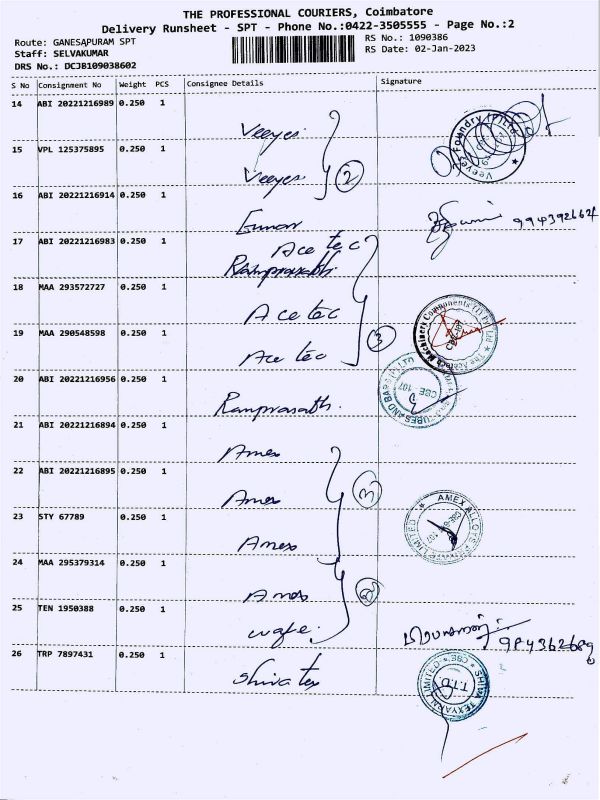 THE PROFESSIONAL COURIERS, Coimbatore
Delivery Runsheet - SPT - Phone No.:0422-3505555 - Page No.:2
Route: GANESAPURAM SPT
RS No.: 1090386
Staff: SELVAKUMAR
RS Date: 02-Jan-2023
DRS No.: DCJB109038602
S No Consignment No Weight PCS Consignee Details Signature
14 ABI 20221216989 0.250 1
Veeyes
Veeyes Foundry (P) Ltd
15 VPL 125375895 0.250 1
Veeyes
2
16 ABI 20221216914 0.250 1
Kumar
17 ABI 20221216983 0.250 1
Ace tec
Ramprasath
18 MAA 293572727 0.250 1
Ace tec
The Acetech Machinery Components (I) Pvt Ltd
19 MAA 290548598 0.250 1
Ace tec
3
20 ABI 20221216956 0.250 1
Ramprasath.
CBE-107
21 ABI 20221216894 0.250 1
Amex
22 ABI 20221216895 0.250 1
Amex
3
AMEX ALLOYS PRIVATE LIMITED
23 STY 67789 0.250 1
Amex
24 MAA 295379314 0.250 1
2
25 TEN 1950388 0.250 1
9843626890
26 TRP 7897431 0.250 1
Shiva tex
SHIVA TEXYARN LIMITED * CBE *
T.T.D